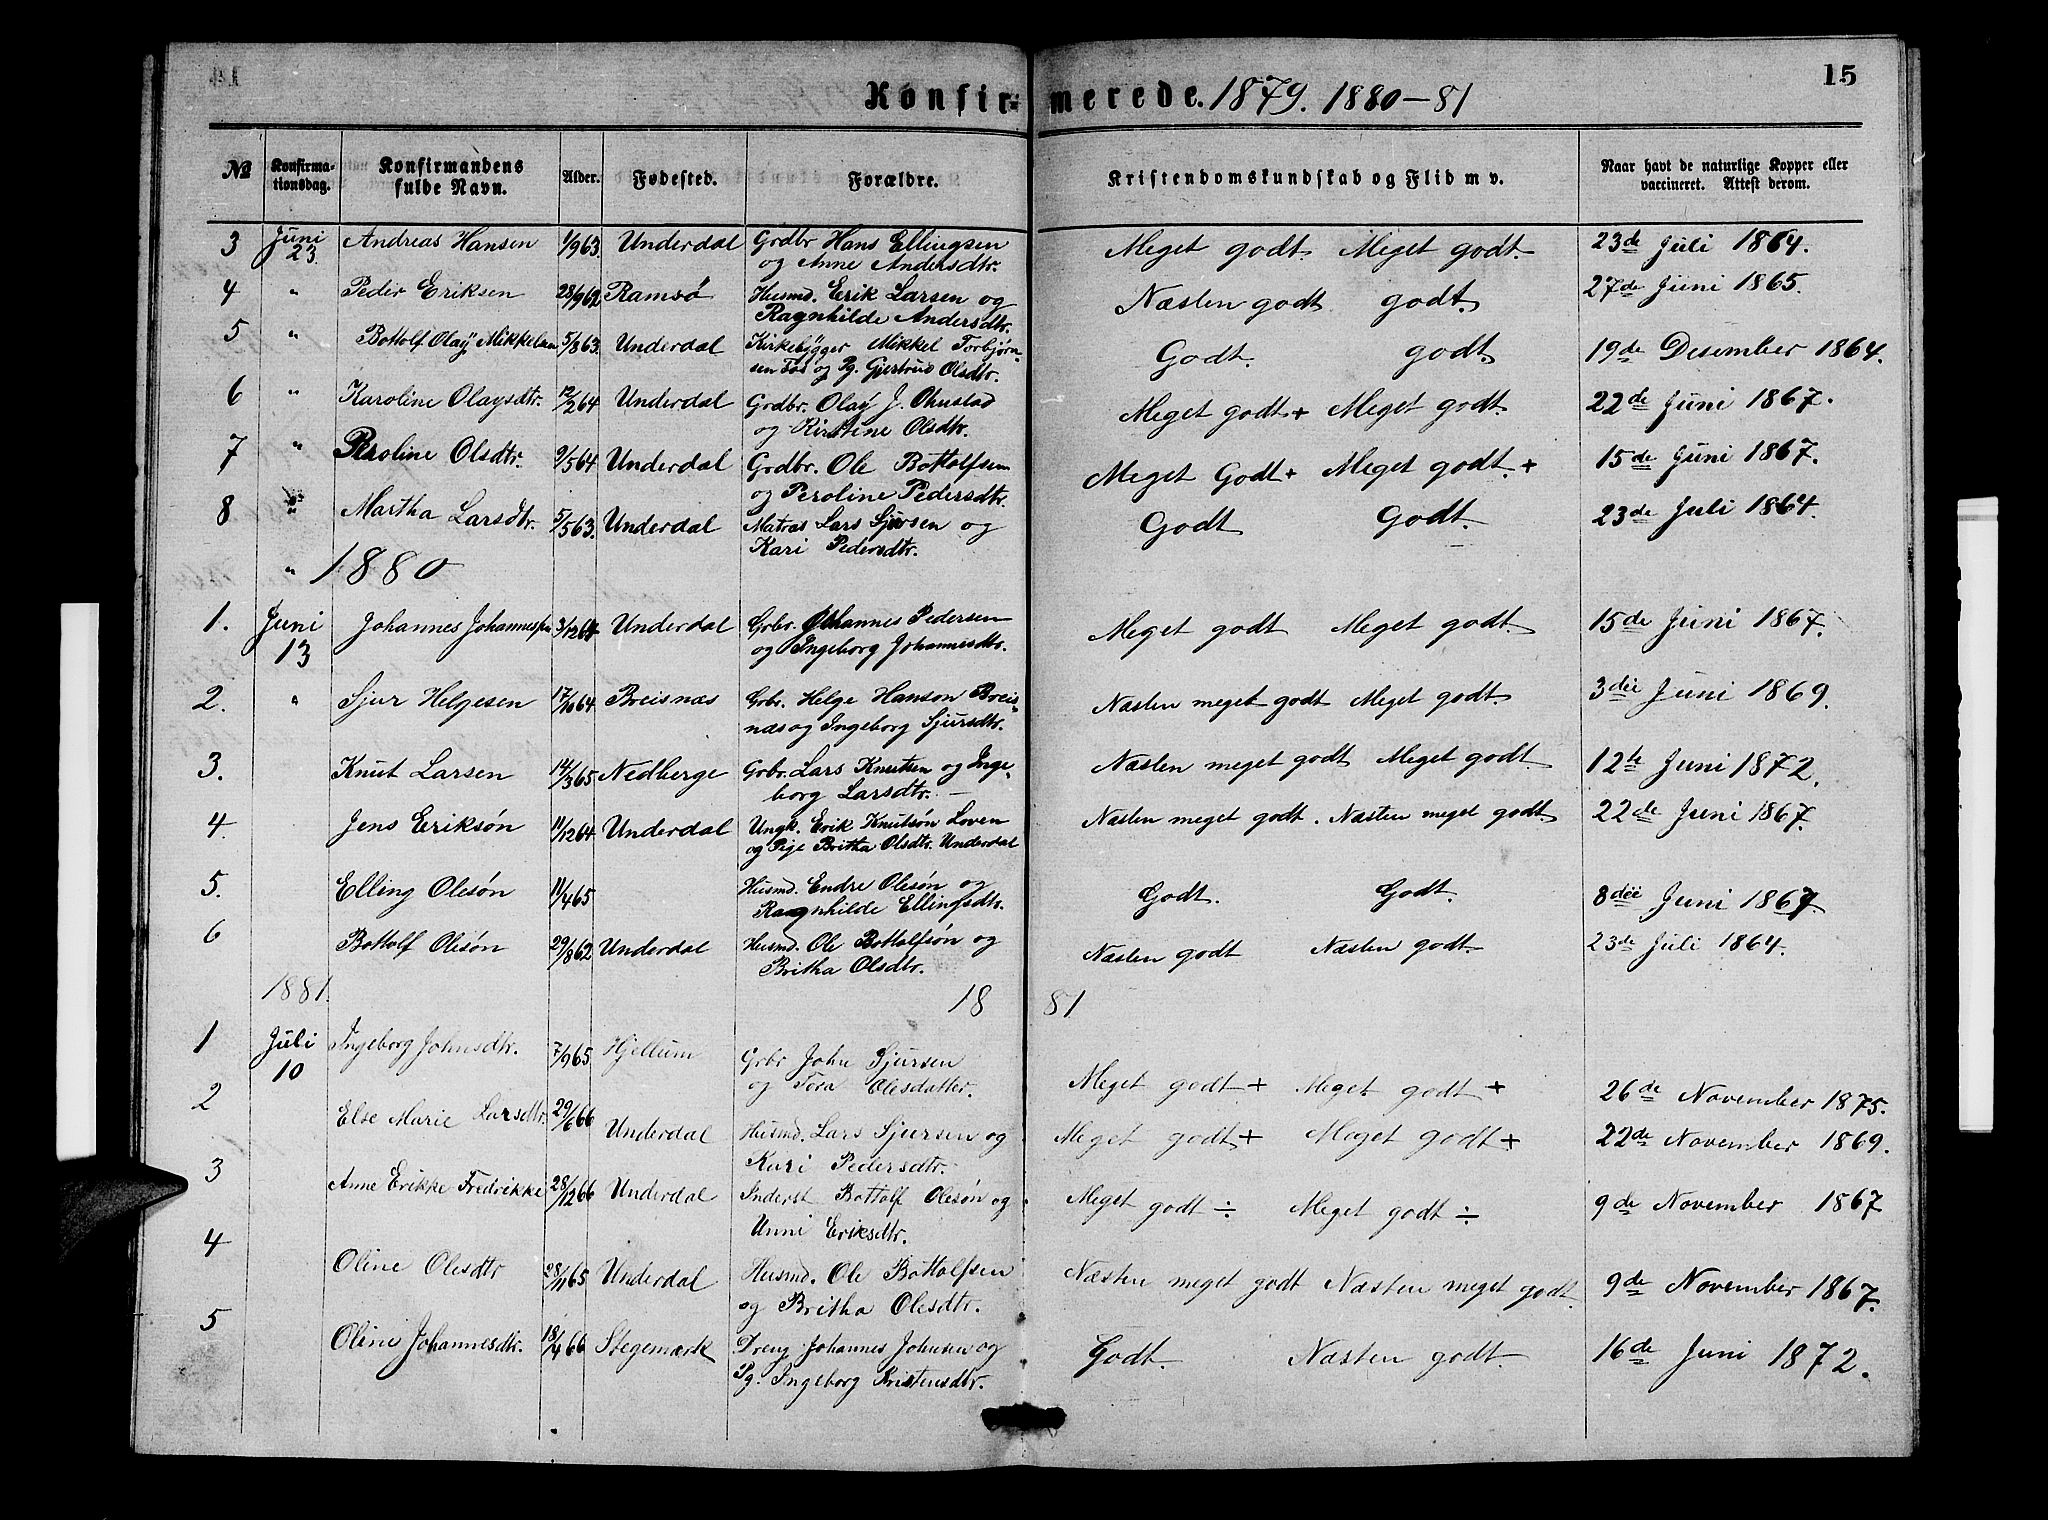 Konfirmerede. 1879. 1880-81 15
No Konfirmationsdag. Konfirmandens fulde Navn. Alder. Fødested. Forældre. Kristendomskundskab og Flid m v. Naar havt de naturlige Kopper eller vaccineret. Attest derom.
3 Juni 23 Andreas Hansen 1/9 63. Underdal Grdbr Hans Ellingsen Meget godt. Meget godt. 23de Juli 1864.
og Anne Andersdtr.
4 " Peder Eriksen 28/9 62 Ramsö Husmd. Erik Larsen og Næsten godt godt. 27de Juni 1865.
Ragnhilde Andersdtr.
5 " Bottolf Olaÿ Mikkelsen 5/8 63. Underdal Kirkebygger Mikkel Torbjørn- Godt. godt. 19de Desember 1864.
sen Fos og Pg. Gjertrud Olsdtr.
6 " Karoline Olaysdtr. 12/2 64 Underdal Grdbr. Olaÿ J. Ohnstad Meget godt + Meget godt. 22de Juni 1867.
og Kirstine Olsdtr.
7 " Peroline Olsdtr. 9/5 64 Underdal Grdbr. Ole Bottolfsen Meget Godt + Meget godt. + 15de Juni 1867.
og Peroline Pedersdtr.
8 " Martha Larsdtr. 5/5 63. Underdal Matros Lars Sjursen og Godt Godt. 23de Juli 1864.
Kari Pedersdtr.
" 1880
1. Juni 13 Johannes Johannessen 3/12 64 Underdal Grbr. Johannes Pedersen Meget godt Meget godt. 15de Juni 1867.
og Ingeborg Johannesdtr.
2. " Sjur Helgesen 17/10 64 Breisnæs Grbr. Helge Hanson Breis- Næsten meget godt Meget godt. 3die Juni 1869.
næs og Ingeborg Sjursdtr.
3. Knut Larsen 14/3 65 Nedberge Grbr. Lars Knutsen og Inge- Næsten meget godt Meget godt. 12te Juni 1872.
borg Larsdtr. —
4. Jens Eriksøn 11/12 64 Underdal Ungk. Erik Knutsøn Loven Næsten meget godt. Næsten meget godt. 22de Juni 1867.
og Pige Britha Olsdtr. Underdal
5. Elling Olesøn 11/4 65 Husmd. Endre Olesøn og Godt. Godt. 8die Juni 1867.
Ragnhilde Ellingsdtr.
6 Bottolf Olesøn 29/8 62 Underdal Husmd. Ole Bottolfsøn og Næsten godt Næsten godt. 23de Juli 1864.
Britha Olsdtr.
1881. 18 81
1 Juli 10 Ingeborg Johnsdtr. 7/9 65 Hjellum Grbr John Sjursen Meget godt + Meget godt + 26de November 1875.
og Tora Olesdatter.
2 Else Marie Larsdtr. 29/6 66 Underdal Husmd. Lars Sjursen og Meget godt + Meget godt + 22de November 1869.
Kari Pedersdtr.
3 Anne Erikke Fredrikke 28/12 66 Underdal Inderst Bottolf Olesøn og Meget godt ÷ Meget godt ÷ 9de November 1867
Unni Eriksdtr.
4 Oline Olesdtr 28/11 65 Underdal Husmd. Ole Bottolfsen Næsten meget godt Næsten meget godt. 9de November 1867.
og Britha Olesdtr.
5 Oline Johannesdtr. 18/4 66 Stegemærk Dreng Johannes Johnsen og Godt. Næsten godt. 16de Juni 1872.
Pg. Ingeborg Kristensdtr.